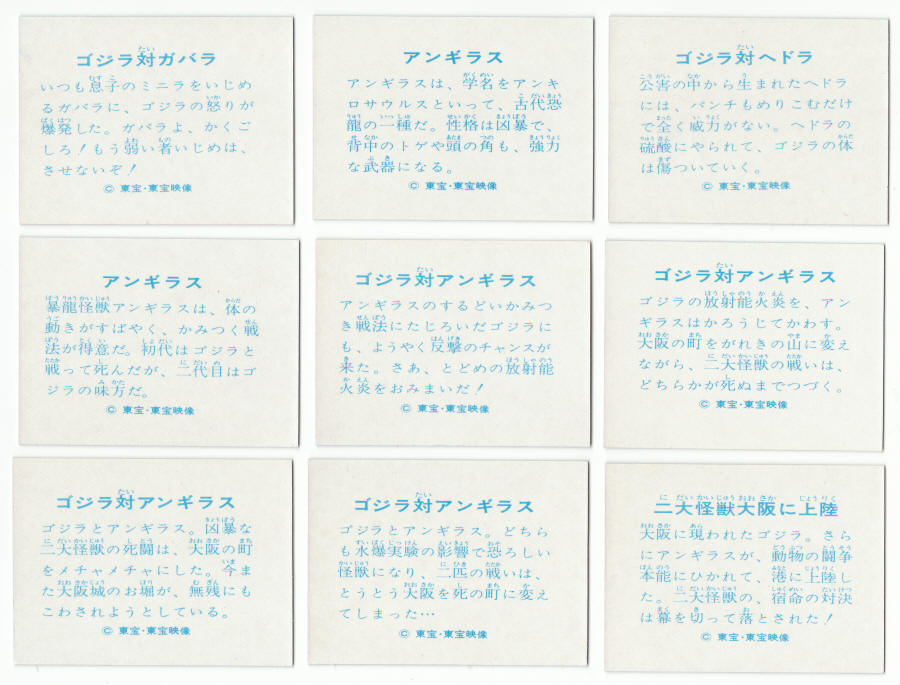 ゴジラ対ガバラ
いつも息子のミニラをいじめ
るガバラに、ゴジラの怒りが
爆発した。ガバラよ、かくご
しろ！もう弱い者いじめは、
させないぞ！
© 東宝・東宝映像
アンギラス
アンギラスは、学名をアンキ
ロサウルスといって、古代恐
龍の一種だ。性格は凶暴で、
背中のトゲや頭の角も、強力
な武器になる。
© 東宝・東宝映像
ゴジラ対ヘドラ
公害の中から生まれたヘドラ
には、パンチもめりこむだけ
で全く威力がない。ヘドラの
硫酸にやられて、ゴジラの体
は傷ついていく。
© 東宝・東宝映像
アンギラス
暴龍怪獣アンギラスは、体の
動きがすばやく、かみつく戦
法が得意だ。初代はゴジラと
戦って死んだが、二代目はゴ
ジラの味方だ。
© 東宝・東宝映像
ゴジラ対アンギラス
アンギラスのするどいかみつ
き戦法にたじろいだゴジラに
も、ようやく反撃のチャンスが
来た。さあ、とどめの放射能
火炎をおみまいだ！
© 東宝・東宝映像
ゴジラ対アンギラス
ゴジラの放射能火炎を、アン
ギラスはかろうじてかわす。
大阪の町をがれきの山に変え
ながら、二大怪獣の戦いは、
どちらかが死ぬまでつづく。
© 東宝・東宝映像
ゴジラ対アンギラス
ゴジラとアンギラス。凶暴な
二大怪獣の死闘は、大阪の町
をメチャメチャにした。今ま
た大阪城のお堀が、無残にも
こわされようとしている。
© 東宝・東宝映像
ゴジラ対アンギラス
ゴジラとアンギラス。どちら
も水爆実験の影響で恐ろしい
怪獣になり、二匹の戦いは、
とうとう大阪を死の町に変え
てしまった…
© 東宝・東宝映像
二大怪獣大阪に上陸
大阪に現われたゴジラ。さら
にアンギラスが、動物の闘争
本能にひかれて、港に上陸し
た。二大怪獣の、宿命の対決
は幕を切って落とされた！
© 東宝・東宝映像